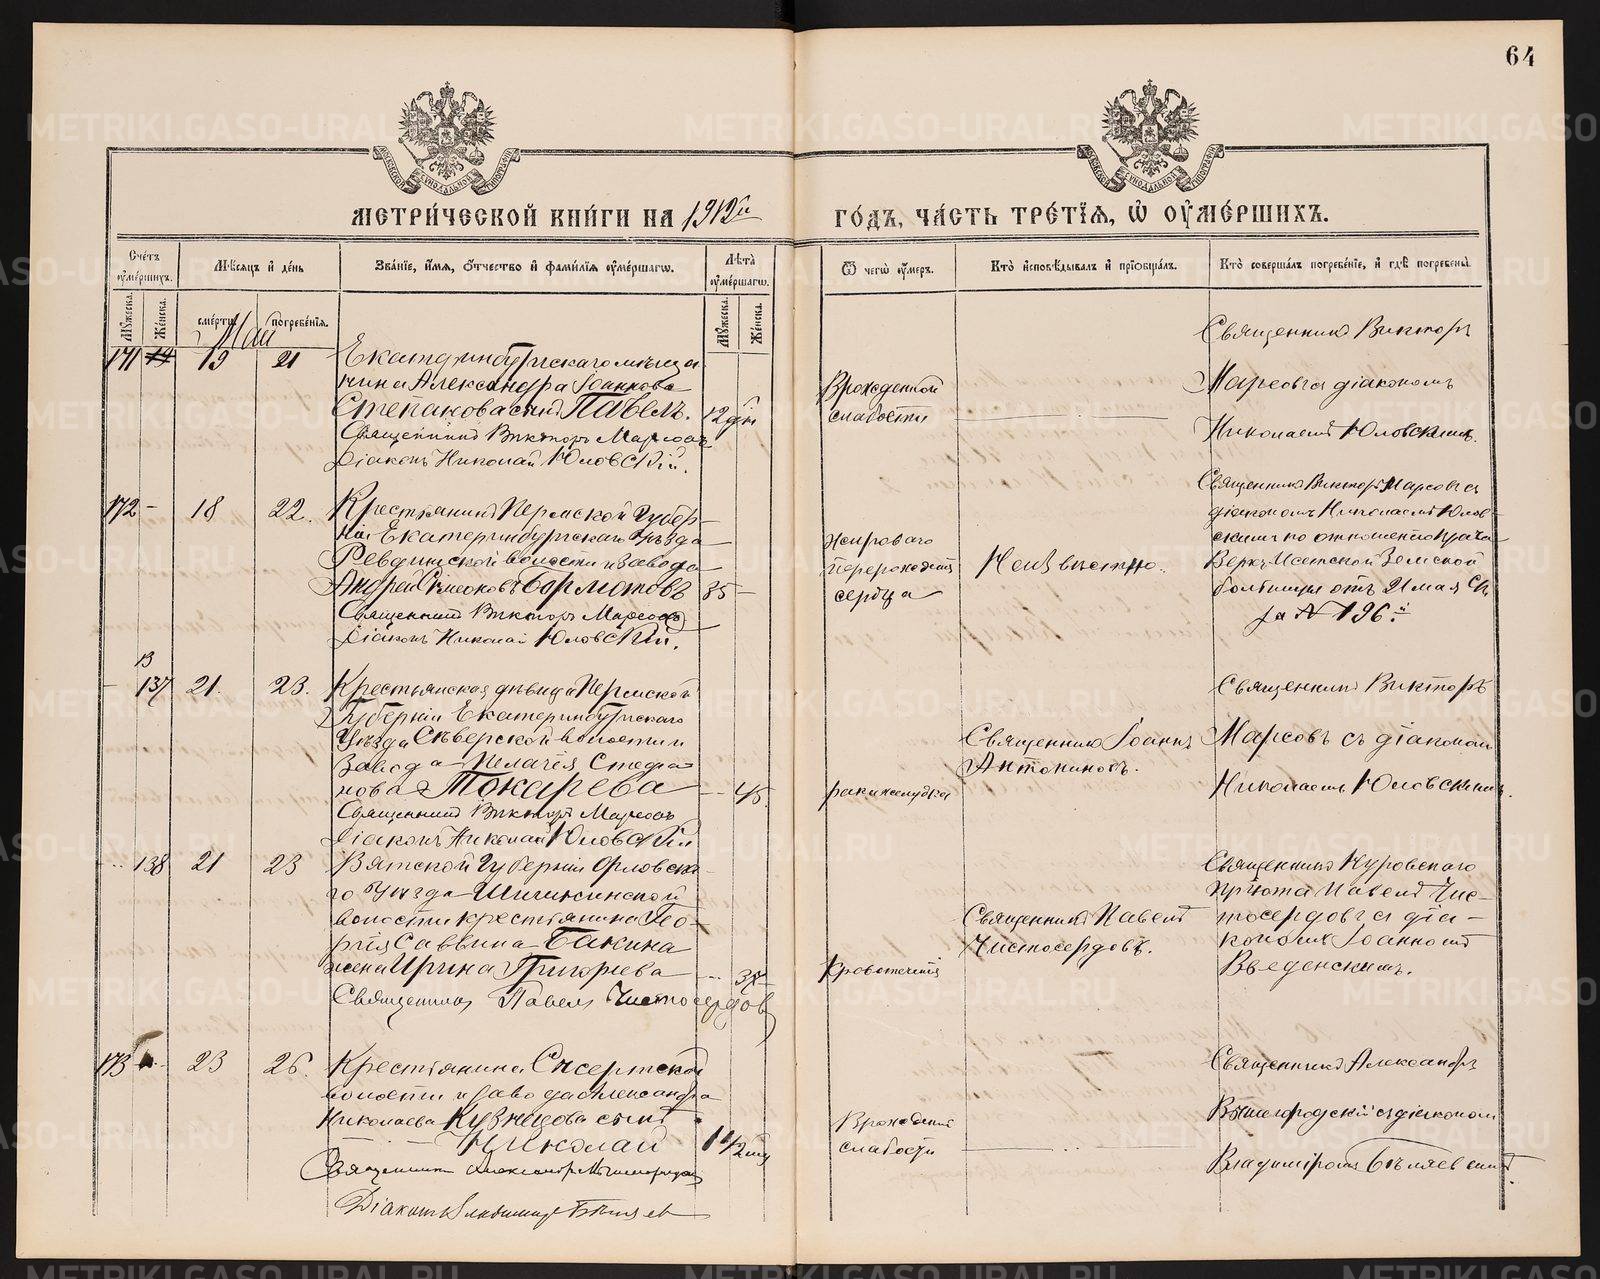 64
МЕТРИ́ЧЕСКОЙ КНИ́ГИ НА 1912й
ГО́ДЪ, ЧА́СТЬ ТРЕ́ТІѦ, Ѡ҆ ОУ҆МЕ́РШИХЪ.
Сче́тъ оу҆ме́ршихъ.
Мѣ́сяцъ и҆ де́нь
Зва́нїе, и҆́мѧ, ѻ҆́тчество и҆ фами́лїѧ оу҆ме́ршагѡ.
Лѣ́та оу҆ме́ршагѡ.
Ѿ чегѡ̀ оу҆́меръ.
Кто̀ и҆сповѣ́дывалъ и҆ прїѡбща́лъ.
Кто̀ соверша́лъ погребе́нїе, и҆ гдѣ̀ погребены̀.
Мꙋ́жеска.
Же́нска.
сме́рти.
погребе́нїѧ.
Мꙋ́жеска.
Же́нска.
Май
171 19 21
Екатеринбургскаго мѣща
нина Александра Іоаннова
Степанова сынъ Павелъ. 12 дн
Священникъ Викторъ Марсовъ
Діаконъ Николай Юловскій.
Врожденной
слабости
Священникъ Викторъ
Марсовъ съ діакономъ
Николаемъ Юловскимъ.
172 – 18 22.
Крестьянинъ Пермской Губер-
ніи Екатеринбургскаго уѣзда
Ревдинской волости и завода
Андрей Симеоновъ Бормотовъ 35 –
Священникъ Викторъ Марсовъ
Діаконъ Николай Юловскій.
жироваго
перерожденія
сердца
Неизвѣстно.
Священникъ Викторъ Марсовъ съ
діакономъ Николаемъ Юлов-
скимъ по отношенію врача
Верхъ-Исетской Земской
больницы отъ 21 мая с/г
за № 196.й
– 137 21. 23.
Крестьянская дѣвица Пермской
Губерніи Екатеринбургскаго
Уѣзда Сѣверской волости и
Завода Пелагія Стефа
нова Токарева – 45
Священникъ Викторъ Марсовъ
Діаконъ Николай Юловскій
рака желудка
Священникъ Іоаннъ
Антониновъ.
Священникъ Викторъ
Марсовъ съ діаконом
Николаемъ Юловскимъ.
138 21 23
Вятской Губерніи Орловска
го Уѣзда
волости крестьянина Гео-
ргія Саввина Бакина
жена Ирина Григорьева – 37
Священникъ Павелъ Чистосердов
Кровотеченія
Священникъ Павелъ
Чистосердовъ.
Священникъ Нуровскаго
пріюта Павелъ Чис-
тосердовъ съ діа-
кономъ Іоанномъ
Введенскимъ.
173 – 23 26.
Крестьянина Сысертской
волости и завода Александра
Николаева Кузнецова сынъ
Николай 1 1/2
Священникъ Александръ
Діаконъ Владимиръ Бѣляев
Врожденной
слабости
Священникъ Александръ
Вышегородскій съ діакономъ
Владиміромъ Бѣляевымъ.
METRIKI.GASO-URAL.RU